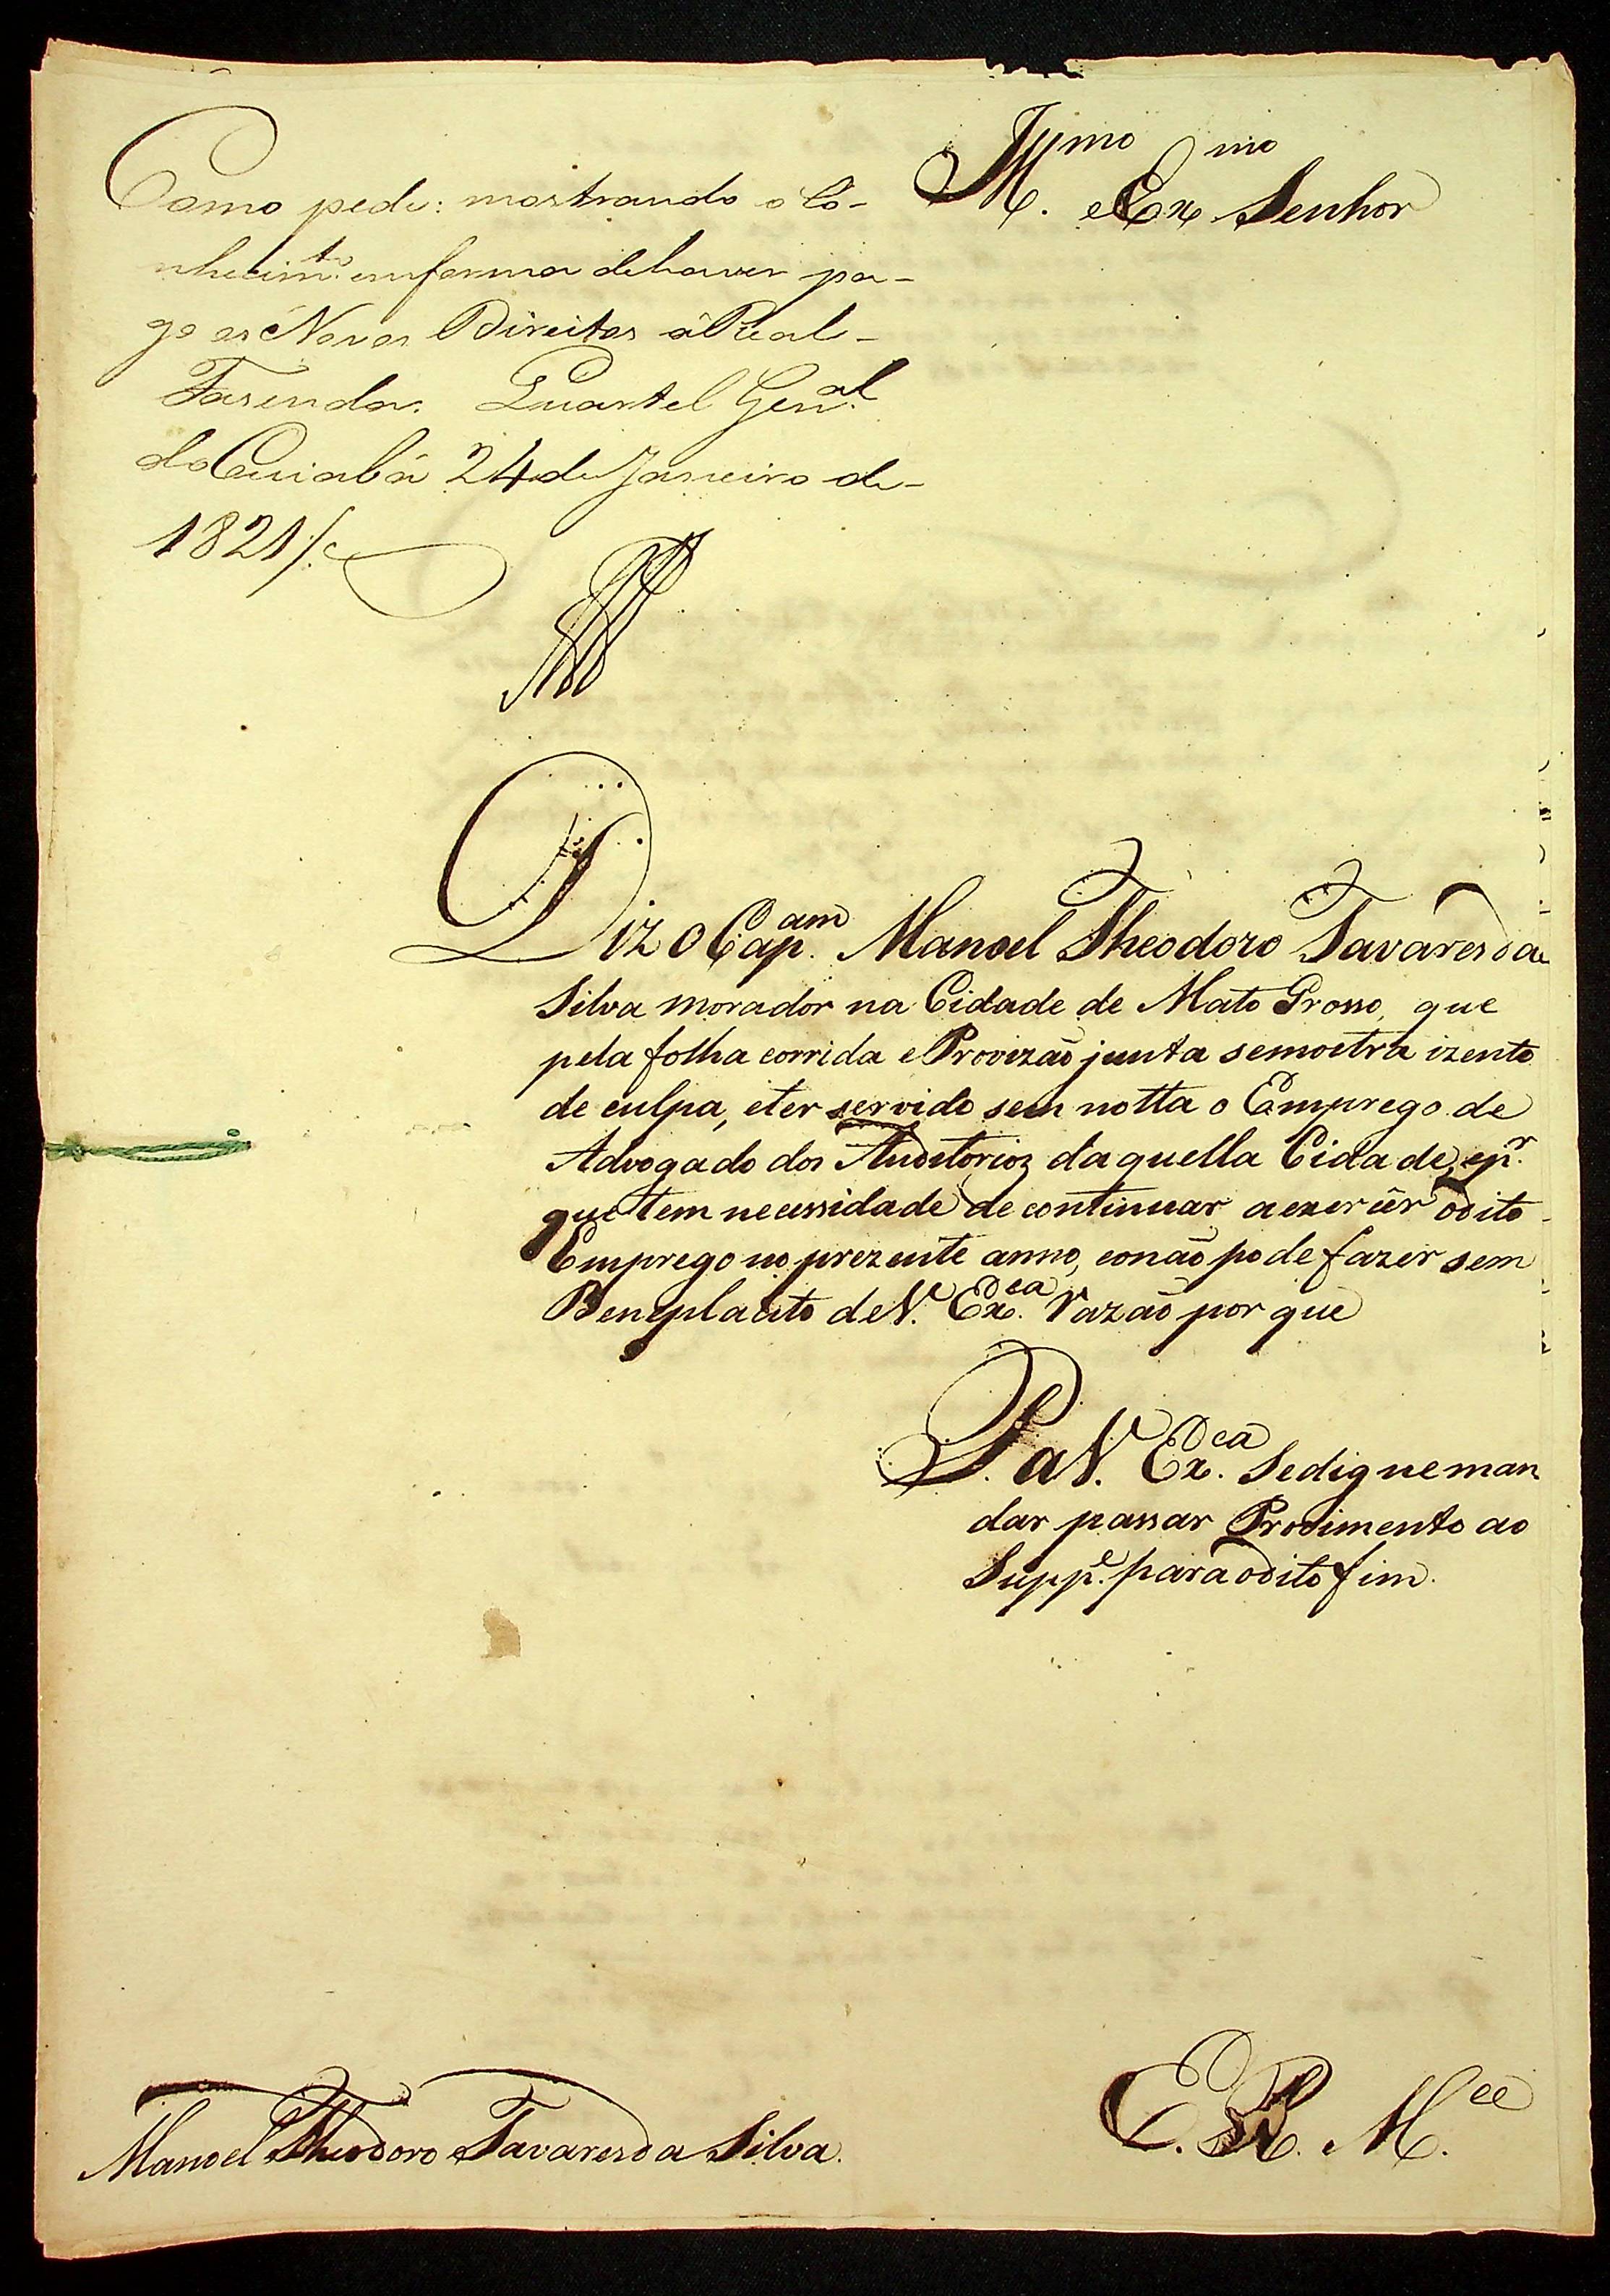 Illmo e Exmo Senhor
Como pede: mostrando o Co-
nhecimto. em forma de haver pa-
go os Novos Direitos á Real
Fasenda. Quartel Genal.
do Cuiabá 24 de Janeiro de
1821/.
Diz o Capam. Manoel Theodoro Tavares da
Silva morador na Cidade de Mato Grosso, que
pela folha corrida e Provizaõ junta se mostra izento
de culpa, e ter servido sem notta o Emprego de
Advogado dos Auditorioz daquella Cidade, e pr.
que tem necessidade de continuar a exercêr o dito
Emprego no prezente anno, e o naõ pode fazer sem
Beneplacito de V. Exca. razaõ por que
P. a V. Exca. Se digne man
dar passar Provimento ao
Suppe. para o dito fim.
E. R. Mce
Manoel Theodoro Tavares da Silva.